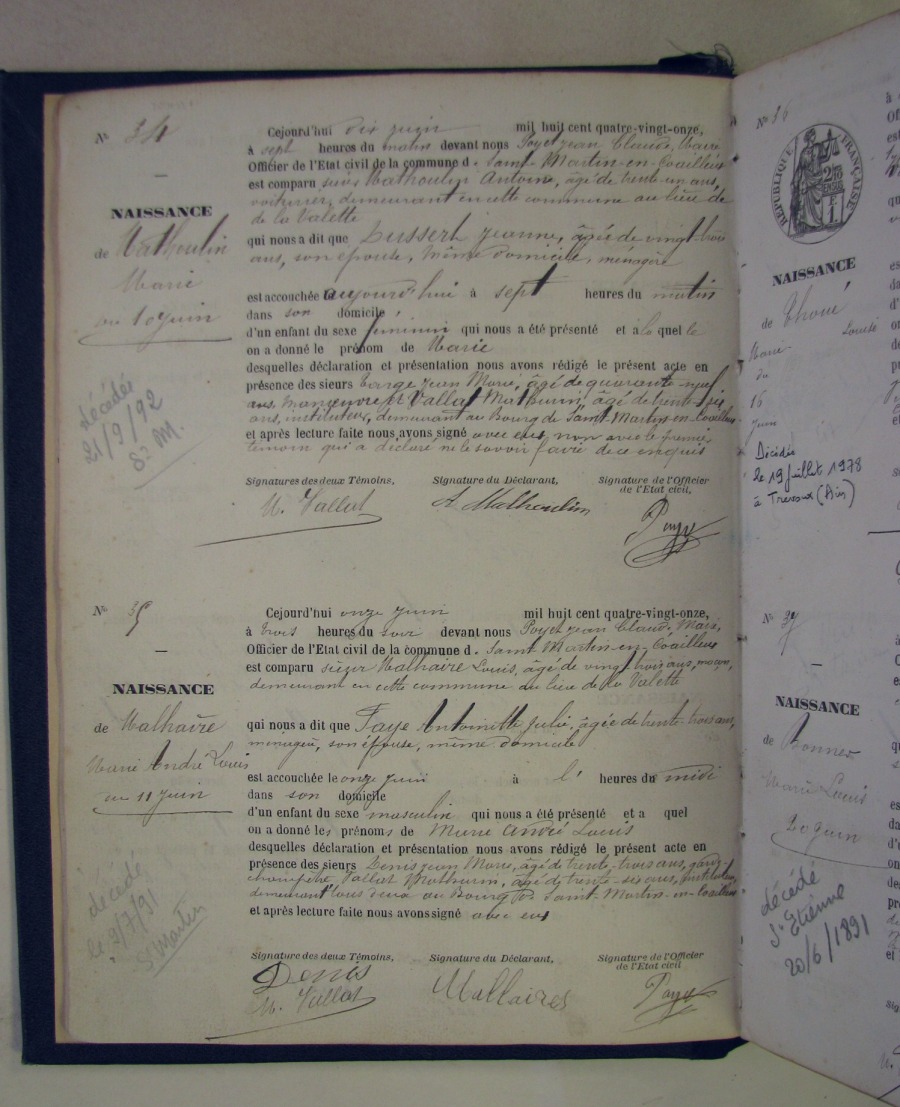 N° 34
NAISSANCE
de Mathoulin
Marie
du 10 juin
décédée
21/9/92
St M.
Cejourd'hui dix juin mil huit cent quatre-vingt-onze,
à sept heures du matin devant nous Poyet Jean Claude, Maire
Officier de l'Etat civil de la commune d. Saint-Martin-en-Coailleux
est comparu sieur Mathoulin Antoine, âgé de trente-un ans,
voiturier, demeurant en cette commune au lieu de
de la Valette
qui nous a dit que Dussert Jeanne, âgée de vingt-trois
ans, son épouse, même domicile, ménagère
est accouchée aujourd'hui à sept heures du matin
dans son domicile
d'un enfant du sexe féminin qui nous a été présenté et à la quel le
on a donné le prénom de Marie
desquelles déclaration et présentation nous avons rédigé le présent acte en
présence des sieurs Barge Jean Marie, âgé de quarante-neuf
ans, manœuvre et Vallat Mathurin, âgé de trente-six
ans, instituteur, demeurant au Bourg de Saint-Martin-en-Coailleux
et après lecture faite nous avons signé avec eux, non avec le premier
témoin qui a déclaré ne le savoir faire de ce enquis
Signatures des deux Témoins, Signature du Déclarant, Signature de l'Officier
de l'Etat civil,
M. Vallat A. Mathoulin Poyet
N° 35
NAISSANCE
de Malhaire
Marie André Louis
du 11 juin
décédé
le 9/7/91
St Martin
Cejourd'hui onze juin mil huit cent quatre-vingt-onze,
à trois heures du soir devant nous Poyet Jean Claude, Maire,
Officier de l'Etat civil de la commune d. Saint-Martin-en-Coailleux
est comparu sieur Malhaire Louis, âgé de vingt trois ans, maçon,
demeurant en cette commune au lieu de la Valette
qui nous a dit que Faye Antoinette Julie, âgée de trente-trois ans,
ménagère, son épouse, même domicile
est accouchée le onze juin à l' heures du midi
dans son domicile
d'un enfant du sexe masculin qui nous a été présenté et a quel
on a donné les prénoms de Marie André Louis
desquelles déclaration et présentation nous avons rédigé le présent acte en
présence des sieurs Denis Jean Marie, âgé de trente-trois ans, garde-
champêtre Vallat Mathurin, âgé de trente-six ans, instituteur,
demeurant tous deux au Bourg de Saint-Martin-en-Coailleux
et après lecture faite nous avons signé avec eux
Signature des deux Témoins, Signature du Déclarant, Signature de l'Officier
de l'Etat civil
Denis
M. Vallat Mallaires Poyet
N° 36
RÉPUBLIQUE FRANÇAISE
NAISSANCE
de Thoué
Marie Louise
du
16
juin
Décédée
le 19 juillet 1978
à Trevoux (Ain)
N° 37
NAISSANCE
de Bonner
Marie Louis
20 juin
décédé
St Etienne
20/6/1891